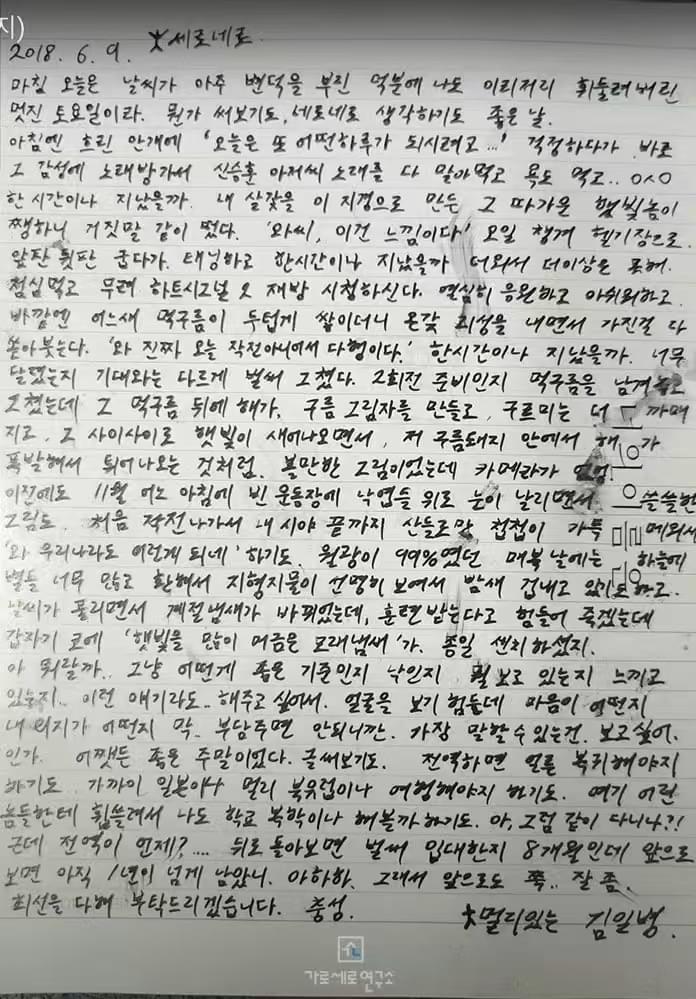 지)
2018. 6. 9. 세로네로
마침 오늘은 날씨가 아주 변덕을 부린 덕분에 나도 이리저리 휘둘려버린
멋진 토요일이라. 뭔가 써보기도, 네로네로 생각하기도 좋은 날.
아침엔 흐린 안개에 '오늘은 또 어떤하루가 되시려고...' 걱정하다가 바로
그 감성에 노래방가서 신승훈 아저씨 노래를 다 말아먹고 욕도 먹고.. ㅇㅅㅇ
한시간이나 지났을까. 내 살갗을 이 지경으로 만든 그 따가운 햇빛놈이
쨍하니 거짓말 같이 떴다. '와씨, 이건 느낌이다' 오일 챙겨 헬기장으로.
앞판 뒷판 굽다가. 태닝하고 한시간이나 지났을까 더워서 더이상은 못해.
점심먹고 무려 하트시그널 2 재방 시청하신다. 열심히 응원하고 아쉬워하고.
바깥엔 어느새 먹구름이 두텁게 쌓이더니 온갖 괴성을 내면서 가진걸 다
쏟아붓는다. '와 진짜 오늘 작전아니어서 다행이다.' 한시간이나 지났을까. 너무
달렸는지 기대와는 다르게 벌써 그쳤다. 2회전 준비인지 먹구름을 남겨놓고
그쳤는데 그 먹구름 뒤에 해가. 구름 그림자를 만들고, 구르미는 더 까매
지고, 그 사이사이로 햇빛이 새어나오면서, 저 구름돼지 안에서 해가
폭발해서 튀어나오는 것처럼. 볼만한 그림이었는데 카메라가
이전에도 11월 어느 아침에 빈 운동장에 낙엽들 위로 눈이 날리면서 쓸쓸한
그림도. 처음 작전나가서 내 시야 끝까지 산들로만 첩첩이 가득 메워서
'와 우리나라도 이렇게 되네' 하기도. 월광이 99%였던 매복날에는 하늘에
별들 너무 많고 환해서 지형지물이 선명히 보여서 밤새 겁내고 있기도하고.
날씨가 풀리면서 계절냄새가 바뀌었는데, 훈련받는다고 힘들어 죽겠는데
갑자기 코에 '햇빛을 많이 머금은 모래냄새'가. 종일 센치하셨지.
아 뭐랄까.. 그냥 어떻게 좋은 기준인지 낙인지 뭘 보고 있는지 느끼고
있는지.. 이런 얘기라도.. 해주고 싶어서. 얼굴을 보기 힘든데 마음이 어떤지
내 의지가 어떤지 막.. 부담주면 안되니깐. 가장 말할 수 있는건. 보고싶어.
인가. 어쨌든 좋은 주말이었다. 글써보기도. 전역하면 얼른 복귀해야지
하기도. 가까이 일본이나 멀리 북유럽이나 여행해야지 하기도. 여기 어린
놈들한테 휩쓸려서 나도 학교 복학이나 해볼까하기도. 아, 그럼 같이 다니나?!
근데 전역이 언제?.... 뒤로 돌아보면 벌써 입대한지 8개월인데 앞으로
보면 아직 1년이 넘게 남았니. 아하하. 그래서 앞으로도 쭉.. 잘 좀.
최선을 다해 부탁드리겠습니다. 충성.
멀리있는 김일병.
가로세로연구소